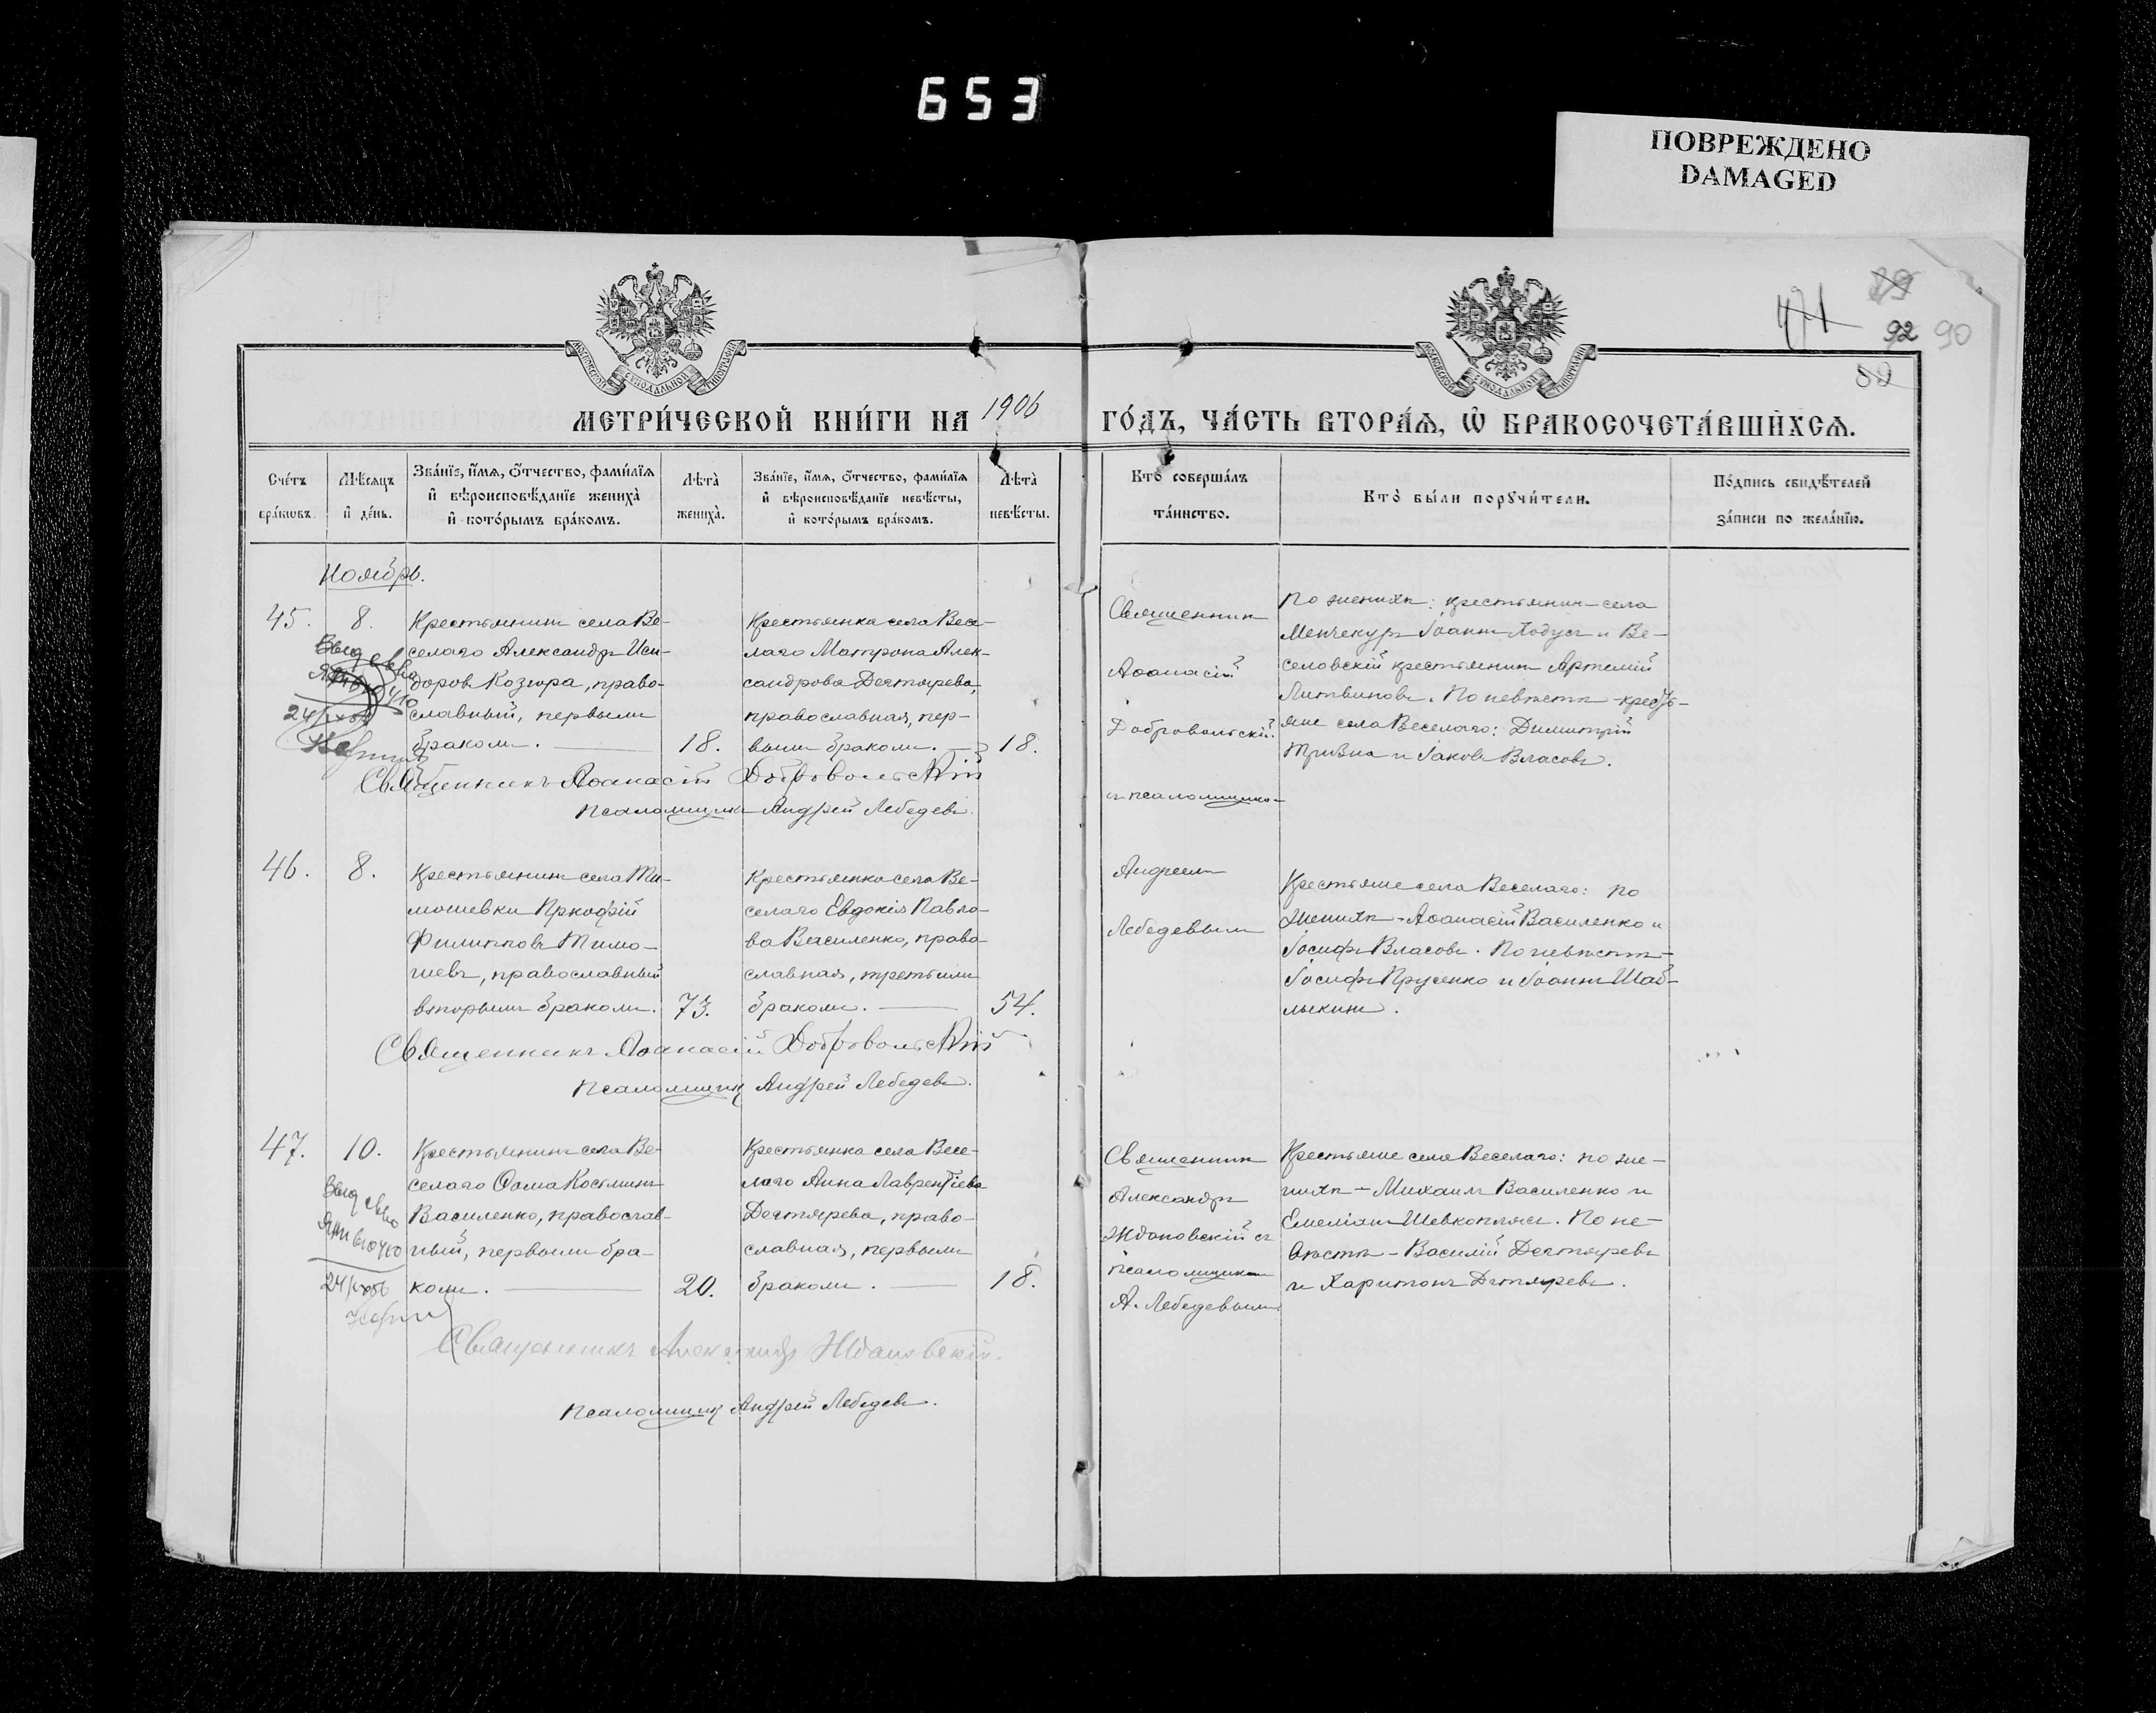 653
ПОВРЕЖДЕНО
DAMAGED
89
471
92 90
80
МОСКОВСКОЙ СѴНОДАЛЬНОЙ ТИПОГРАФІИ
МОСКОВСКОЙ СѴНОДАЛЬНОЙ ТИПОГРАФІИ
МЕТРИ́ЧЕСКОЙ КНИ́ГИ НА 1906 ГО́ДЪ, ЧА́СТЬ ВТОРА́Ѧ, Ѡ҆ БРАКОСОЧЕТА́ВШИХСѦ.
Сче́тъ
бра́кѡвъ.
Мѣ́сѧцъ
и҆ де́нь.
Зва́нїе, и҆́мѧ, ѻ҆́тчество, фами́лїѧ
и҆ вѣроисповѣ́данїе жениха̀
и҆ кото́рымъ бра́комъ.
Лѣта̀
жениха̀.
Зва́нїе, и҆́мѧ, ѻ҆́тчество, фами́лїѧ
и҆ вѣроисповѣ́данїе невѣ́сты,
и҆ кото́рымъ бра́комъ.
Лѣта̀
невѣ́сты.
Кто̀ соверша́лъ
та́инство.
Кто̀ бы́ли порꙋчи́тели.
По́дпись свидѣ́телей
за́писи по жела́нїю.
Ноябрь.
45. 8.
Крестьянинъ села Ве-
селаго Александръ Иси-
доровъ Козюра, право-
славный, первымъ
бракомъ. 18.
Крестьянка села Весе-
лаго Матрона Алек-
сандрова Дегтярева,
православная, пер-
вымъ бракомъ. 18.
Священникъ
Аѳанасій
Добровольскій
съ псаломщико-
По женихѣ: крестьянинъ села
Менчекуръ Іоаннъ Ходусъ и Ве-
селовскій крестьянинъ Артемій
Литвиновъ. По невѣстѣ - кресть-
яне села Веселаго: Димитрій
Тривна и Іаковъ Власовъ.
Священникъ Аѳанасій Добровольскій
Псаломщикъ Андрей Лебедевъ.
46. 8.
Крестьянинъ села Ти-
мошевки Пркофій
Филипповъ Тимо-
шевъ, православный
вторымъ бракомъ. 73.
Крестьянка села Ве-
селаго Евдокія Павло-
ва Василенко, право-
славная, третьимъ
бракомъ. 54.
Андреемъ
Лебедевымъ
Крестьяне села Веселаго: по
женихѣ - Аѳанасій Василенко и
Іосифъ Власовъ. По невѣстѣ -
Іосифъ Прусенко и Іоаннъ Шаб-
лыкинъ.
Священникъ Аѳанасій Добровольскій
Псаломщикъ Андрей Лебедевъ.
47. 10.
Крестьянинъ села Ве-
селаго Ѳома Косьминъ
Василенко, православ-
ный, первымъ бра-
комъ. 20.
Крестьянка села Весе-
лаго Анна Лаврентіева
Дегтярева, право-
славная, первымъ
бракомъ. 18.
Священникъ
Александръ
Ждановскій съ
псаломщикомъ
А. Лебедевымъ.
Крестьяне села Веселаго: по же-
нихѣ - Михаилъ Василенко и
Емеліанъ Шевкоплясъ. По не-
вѣстѣ - Василій Дегтяревъ
и Харитонъ Дегтяревъ.
Священникъ Александръ Ждановскій.
Псаломщикъ Андрей Лебедевъ.